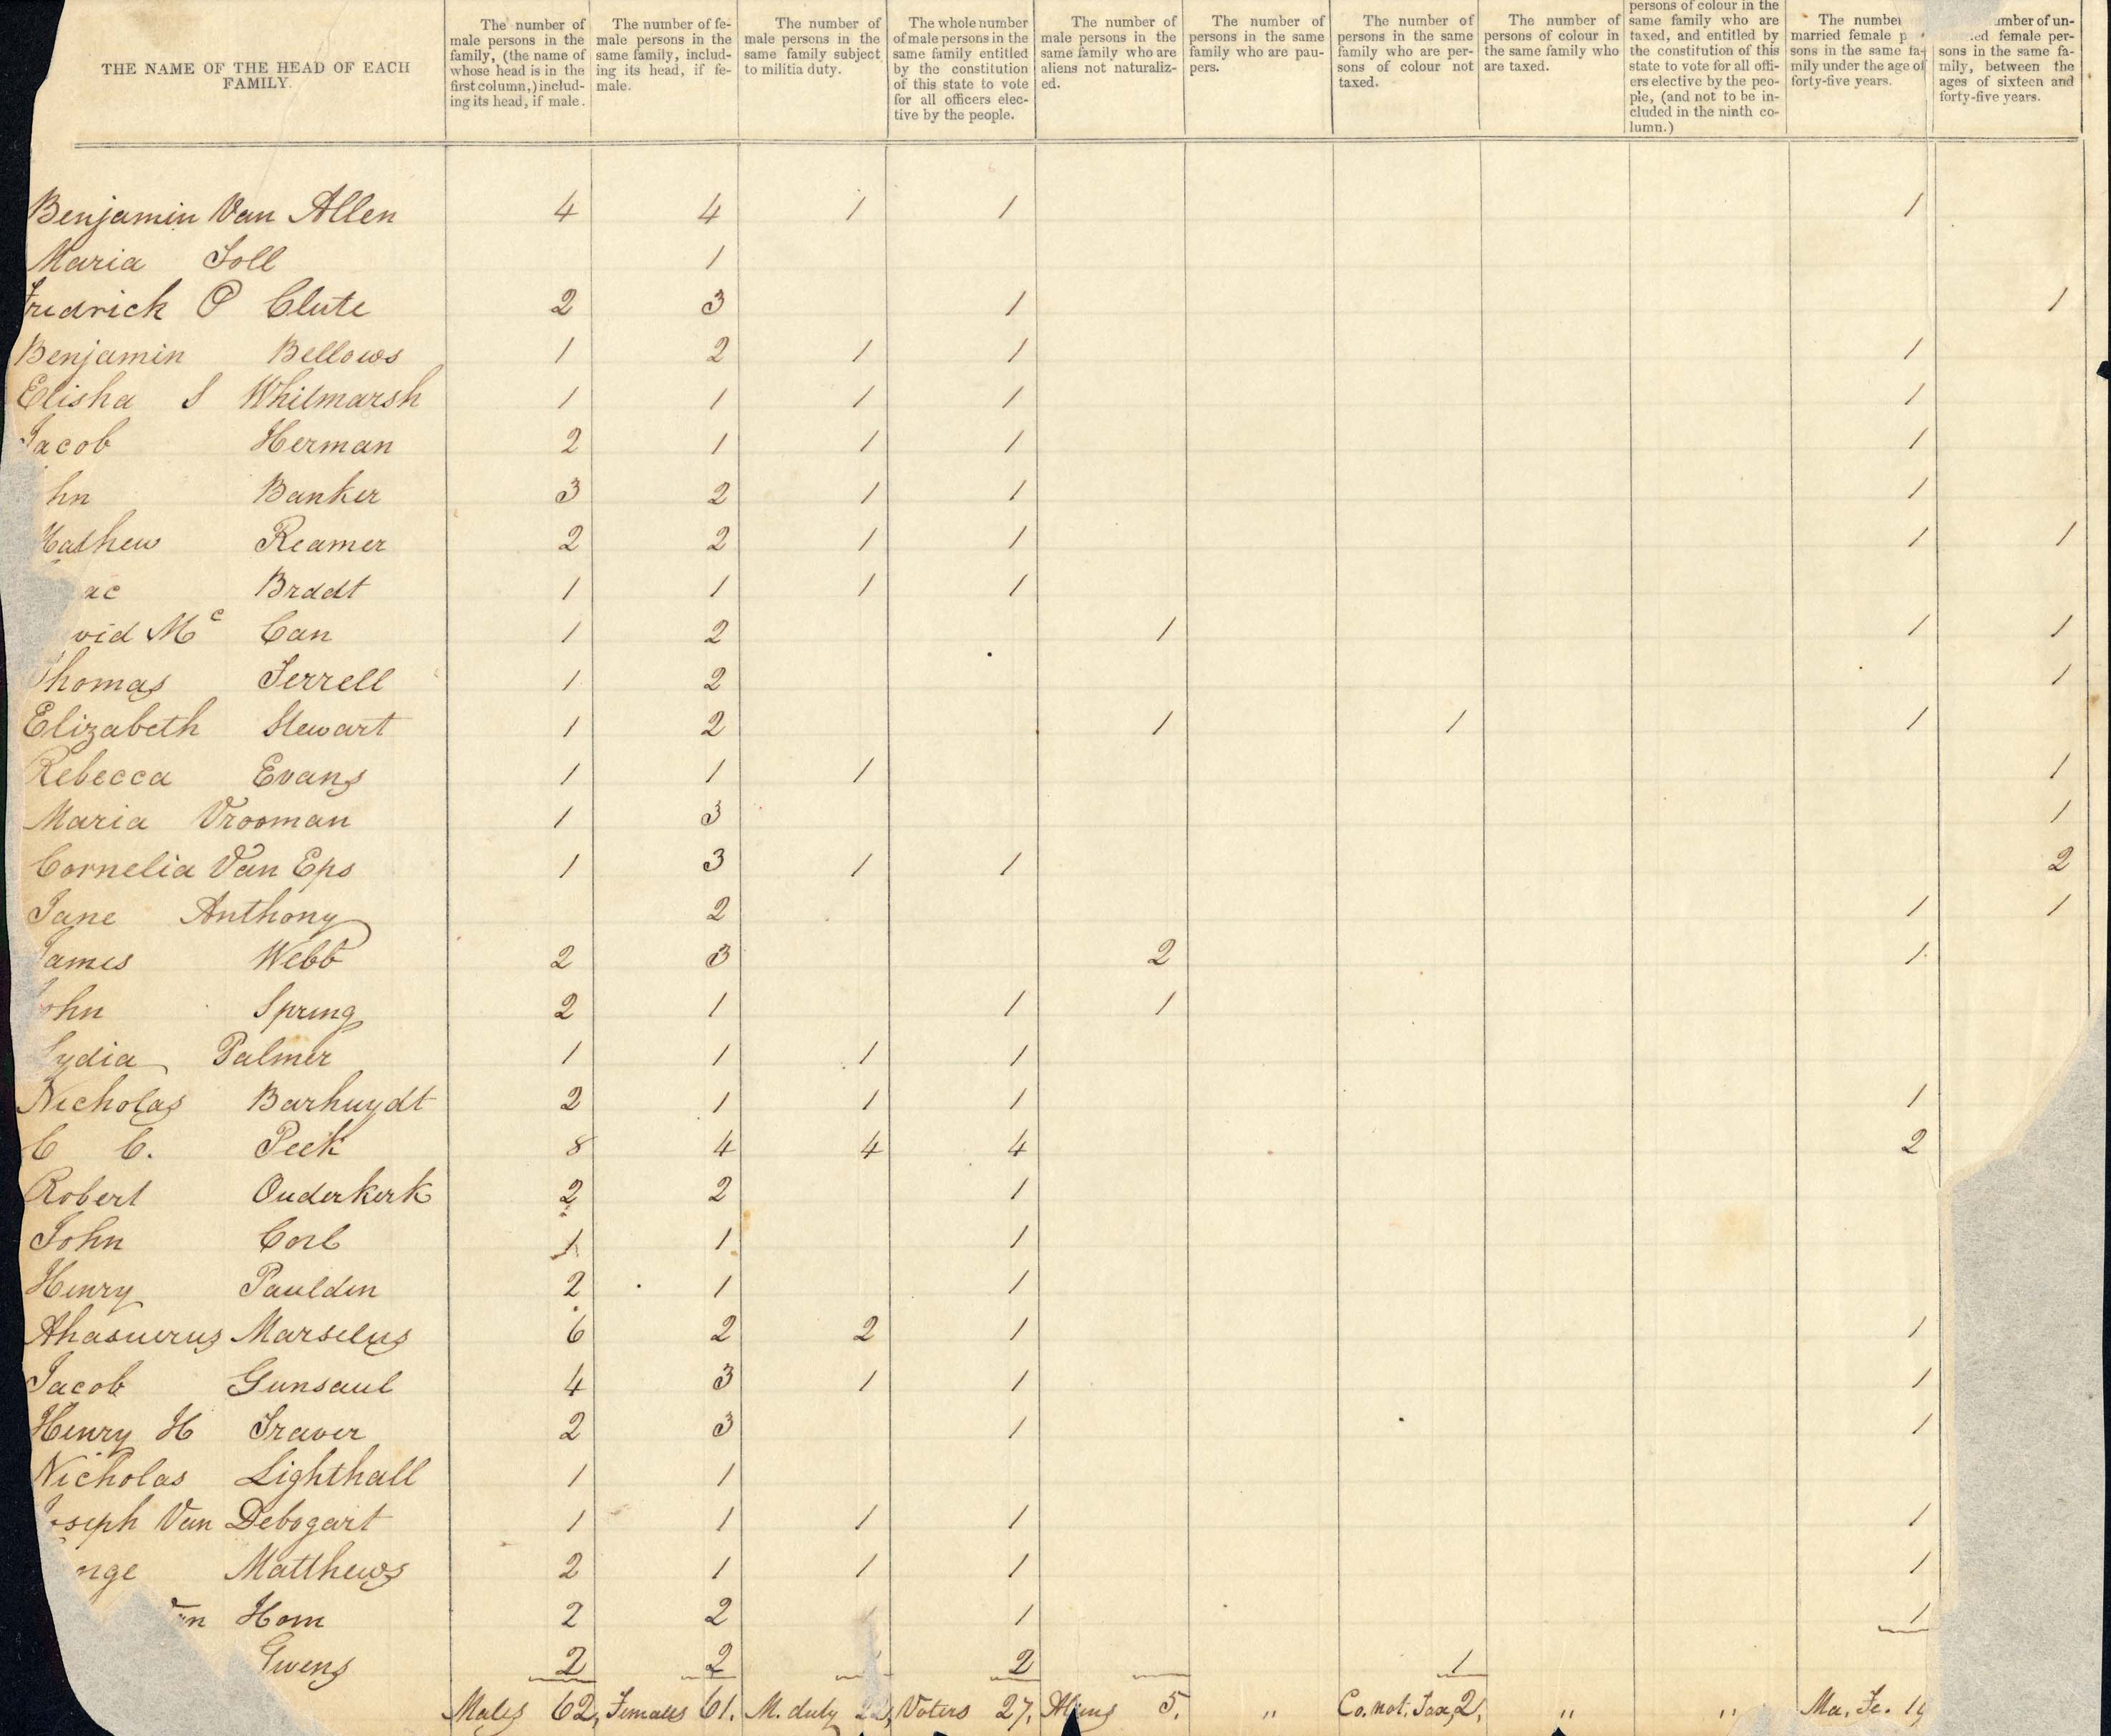 THE NAME OF THE HEAD OF EACH FAMILY.
The number of male persons in the family, (the name of whose head is in the first column,) including its head, if male.
The number of female persons in the same family, including its head, if female.
The number of male persons in the same family subject to militia duty.
The whole number of male persons in the same family entitled by the constitution of this state to vote for all officers elective by the people.
The number of male persons in the same family who are aliens not naturalized.
The number of persons in the same family who are paupers.
The number of persons in the same family who are persons of colour not taxed.
The number of persons of colour in the same family who are taxed.
persons of colour in the same family who are taxed, and entitled by the constitution of this state to vote for all officers elective by the people, (and not to be included in the ninth column.)
The number married female persons in the same family under the age of forty-five years.
number of un- ed female persons in the same family, between the ages of sixteen and forty-five years.
Benjamin Van Allen 4 4 1 1 1
Maria Toll 1
Fredrick P Clute 2 3 1 1
Benjamin Bellows 1 2 1 1 1
Elisha S Whitmarsh 1 1 1 1 1
Jacob Herman 2 1 1 1 1
hn Banker 3 2 1 1 1
Mathew Reamer 2 2 1 1 1 1
ac Bradt 1 1 1 1
vid Mc Can 1 2 1 1 1
Thomas Terrell 1 2 1
Elizabeth Stewart 1 2 1 1 1
Rebecca Evans 1 1 1 1
Maria Vrooman 1 3 1
Cornelia Van Eps 1 3 1 1 2
Jane Anthony 2 1 1
James Webb 2 3 2 1
John Spring 2 1 1 1
Lydia Palmer 1 1 1 1
Nicholas Barhuydt 2 1 1 1 1
C C. Peek 8 4 4 4 2
Robert Ouderkerk 2 2 1
John Corl 1 1 1
Henry Paulden 2 1 1
Ahasuerus Marselus 6 2 2 1 1
Jacob Gunsaul 4 3 1 1 1
Henry H Traver 2 3 1 1
Nicholas Lighthall 1 1
oseph Van Debogart 1 1 1 1 1
nge Matthews 2 1 1 1 1
an Horn 2 2 1 1 1
Gwens 2 2 2 1
Males 62, Females 61. M. duty 22, Voters 27. Aliens 5. " Co. not. Tax, 2, " " Ma. Fe. 19